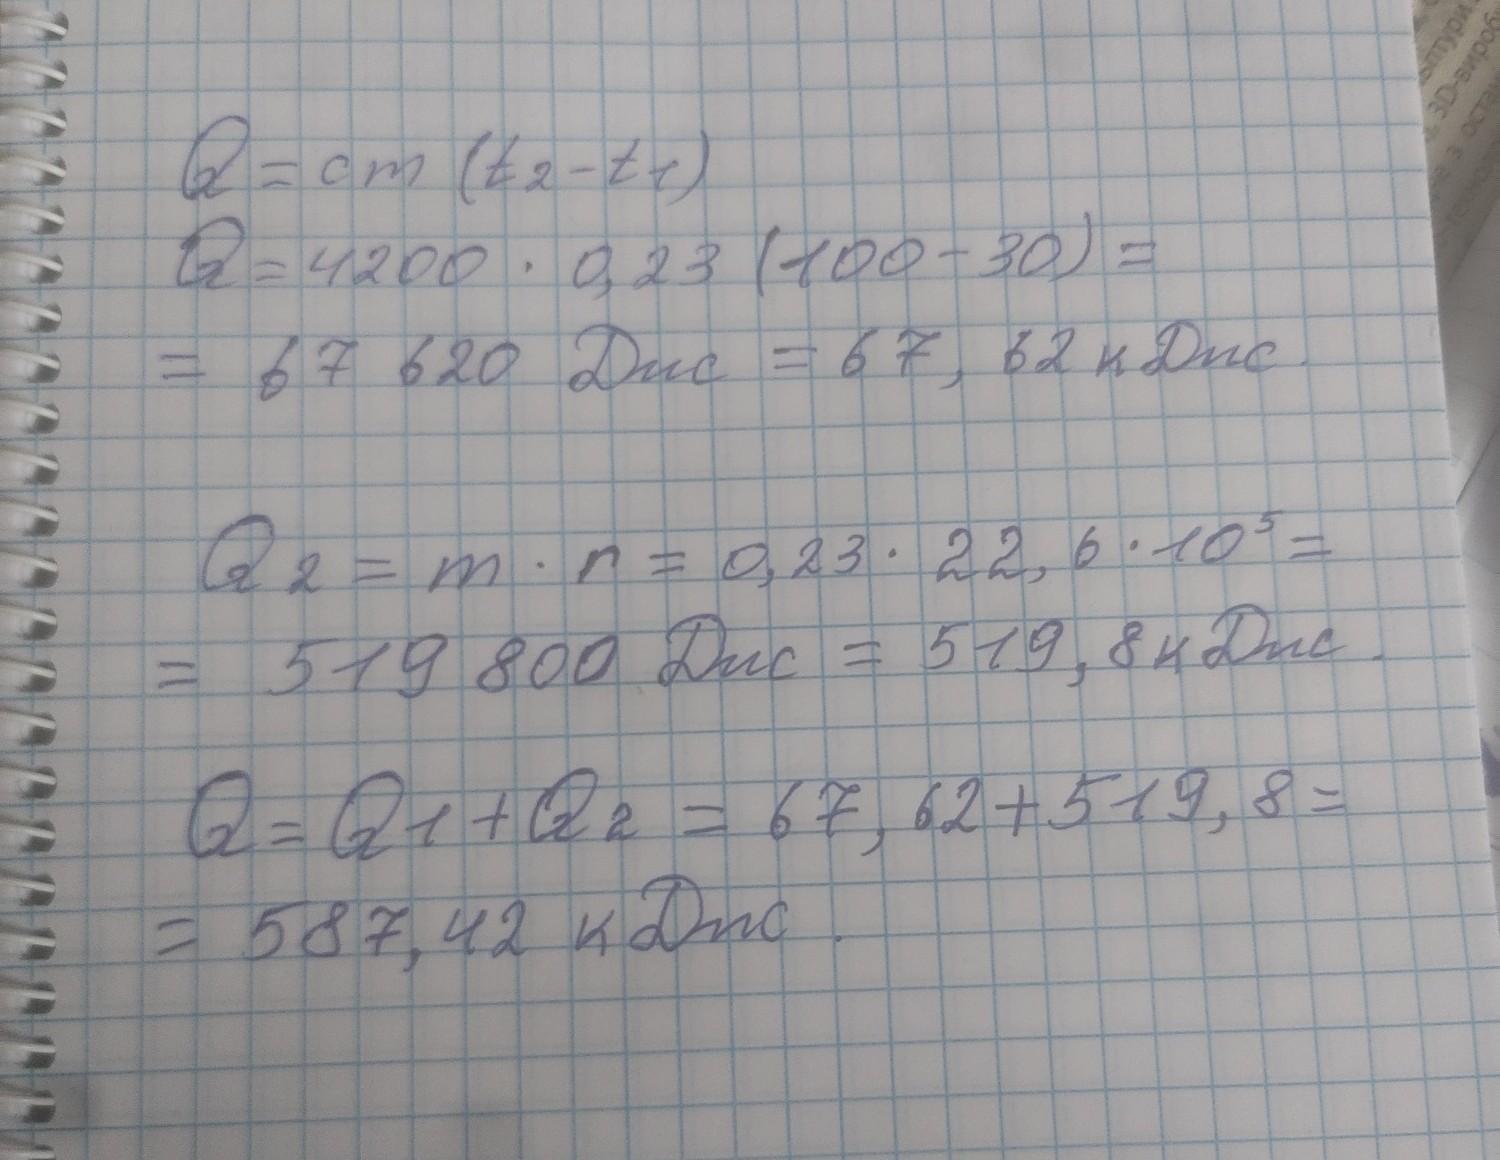 Q = cm (t2 - t1)
Q = 4200 · 0,23 (100 - 30) =
= 67 620 Дж = 67, 62 кДж.
Q2 = m · r = 0,23 · 22, 6 · 10⁵ =
= 519 800 Дж = 519, 8 кДж.
Q = Q1 + Q2 = 67, 62 + 519, 8 =
= 587, 42 кДж.
3D-вироб